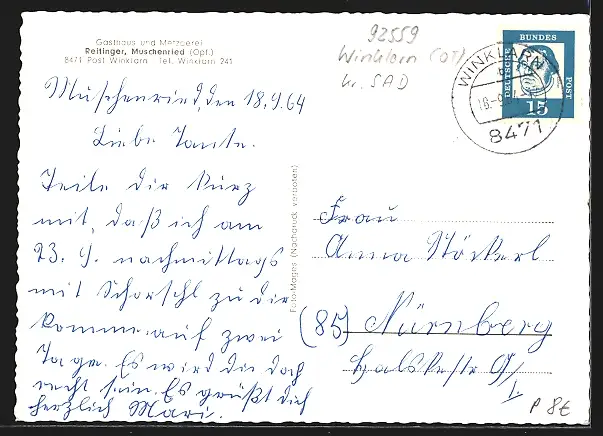 Gasthaus und Metzgerei
Reitinger, Muschenried (Opf.)
8471 Post Winklarn Tel. Winklarn 241
92559
Winklarn (OT)
Kr. SAD
WINKLARN
18.-9.
8471
DEUTSCHE BUNDES POST
15
Muschenried, den 18.9.64
Liebe Tante.
Teile dir kurz
mit, daß ich am
23. 9. nachmittags
mit Schorschl zu dir
komme auf zwei
Tage. Es wird dir doch
recht sein. Es grüßt dich
herzlich Mari.
Foto-Mages (Nachdruck verboten)
Frau
Anna Stöckerl
(85) Nürnberg
I
P 8€